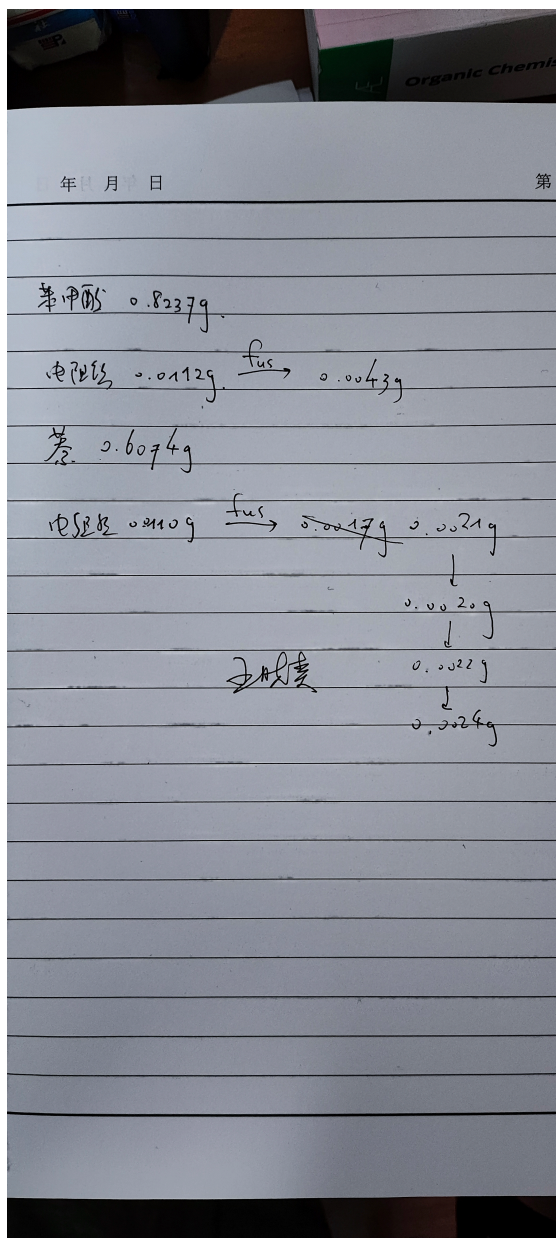 Organic Chemis
年 月 日 第
苯甲酸 0.8237g.
电阻丝 0.0112g. fus → 0.0043g
萘 0.6074g
电阻丝 0.0110g fus → 0.0017g 0.0021g
↓
0.0020g
↓
0.0022g
↓
0.0024g